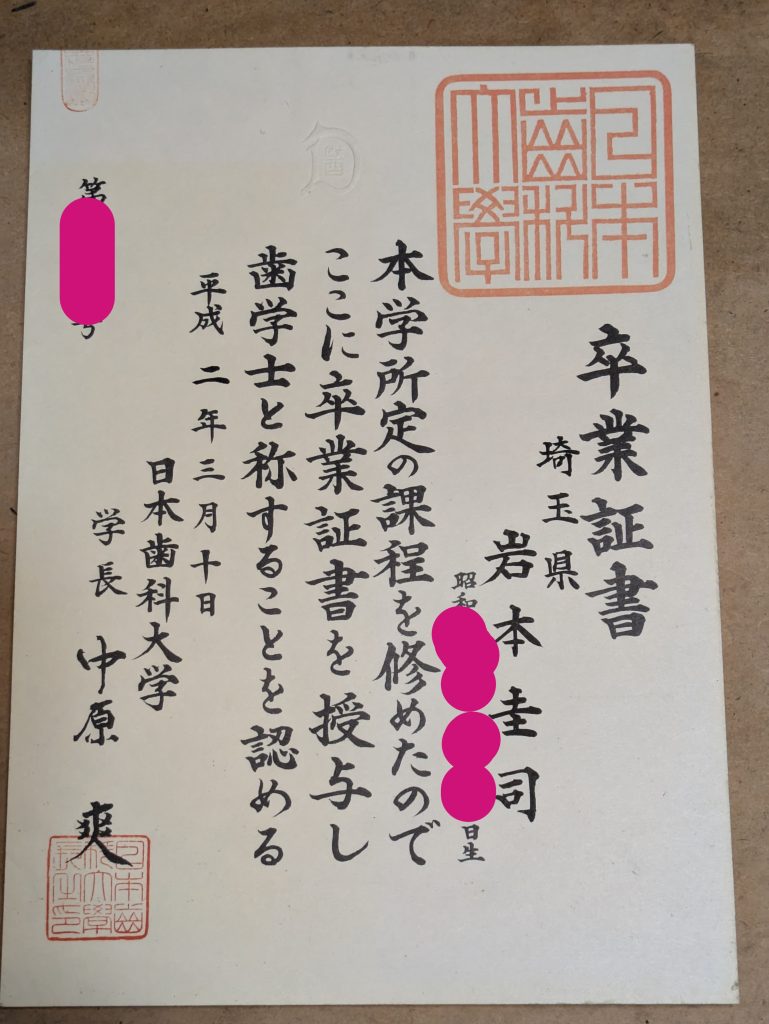 日本歯科大学
卒業証書
埼玉県
岩本圭司
昭和
日生
本学所定の課程を修めたので
ここに卒業証書を授与し
歯学士と称することを認める
平成二年三月十日
日本歯科大学
学長 中原爽
日本齒科大學長之印
第
号